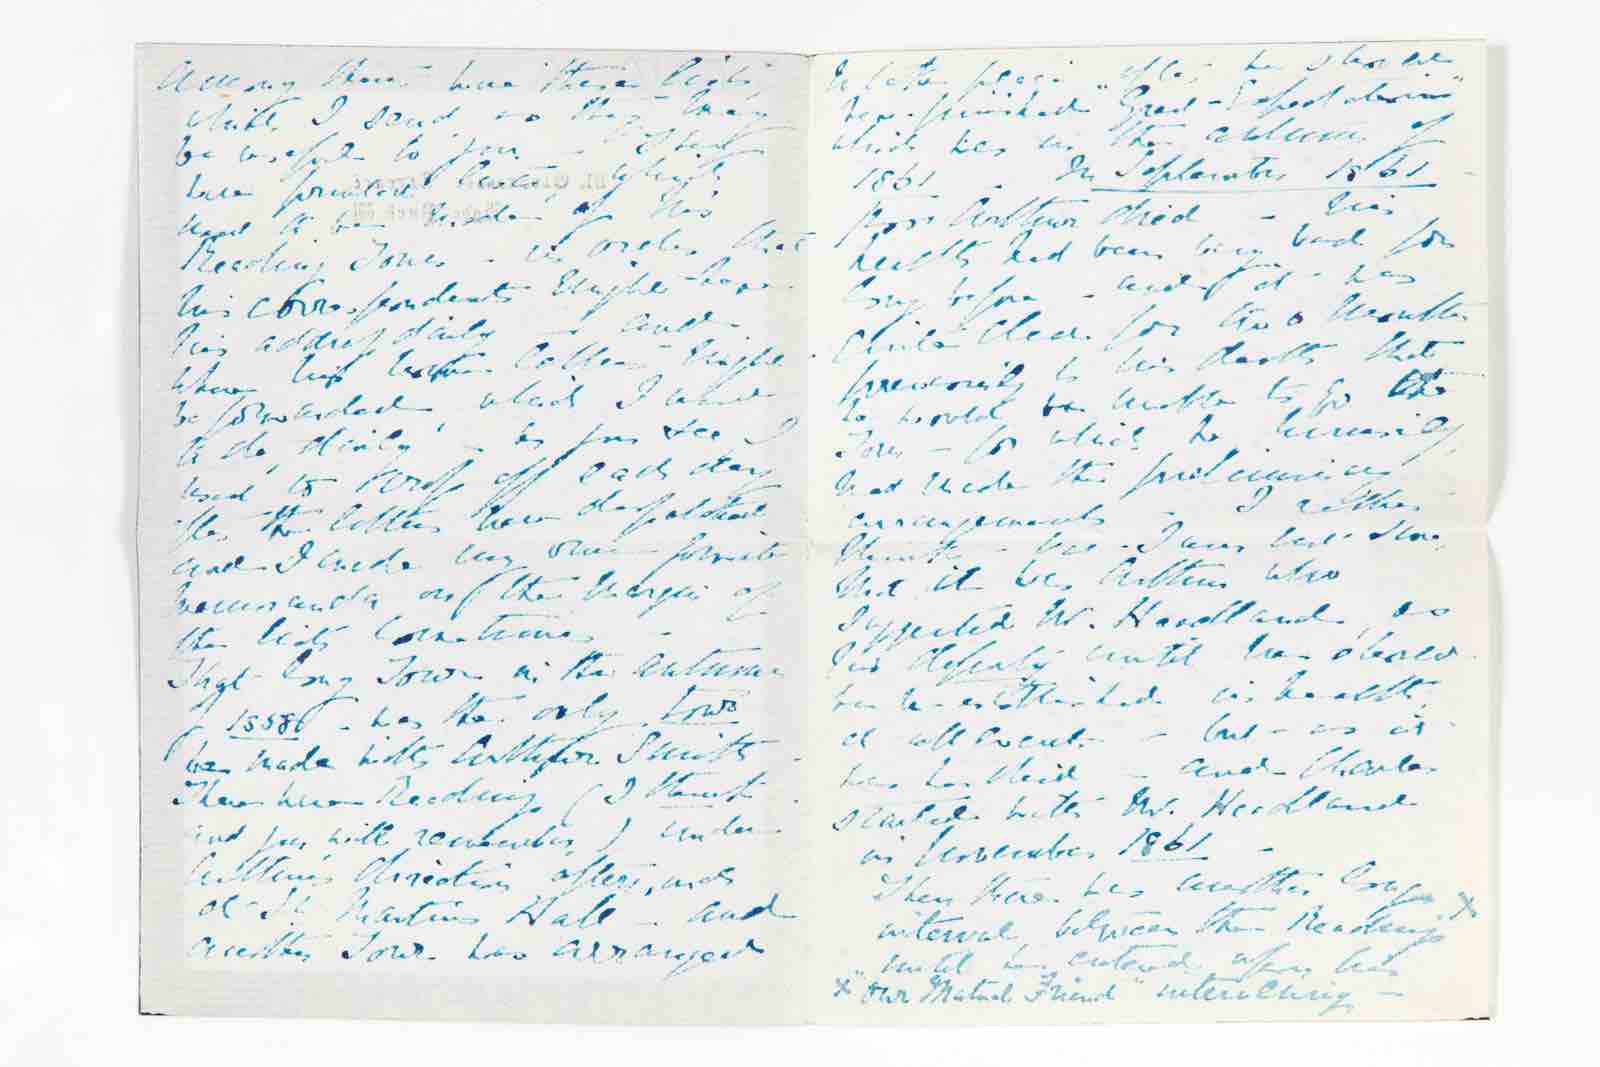 Among them were these lists,
which I send as they may
be useful to you - They
were printed lists, which
used to be made of his
Reading Tours - in order that
his correspondents might have
his address daily - and
where his letters might
be forwarded, which I used
to do, daily - As you see I
used to off each day
after the letters were despatched
and I made my own private
memoranda on the margin of
the lists sometimes -
That long Tour in the autumn
of 1858 - was the only tour
he made with Arthur Smith -
There were Readings (I think
and you will remember) under
Arthur's direction afterwards
at St. Martin's Hall - and
another Tour was arranged
to take place after he should
have finished "Great Expectations"
which was in the autumn of
1861 In September 1861 -
poor Arthur died - His
health had been very bad for
long before - and it was
quite clear for two months
previously to his death that
he would be unable to go the
Tour - for which he
had made the preliminary
arrangements - I rather
think - but I am not sure,
that it was Arthur who
suggested Mr. Headland, as
his deputy until he should
be re-established in health,
at all events - but - as it
was he died - and Charles
started with Mr. Headland
in November 1861 -
Then there was another long x
interval, between the Readings
until he entered upon his
x "Our Mutual Friend" intervening -